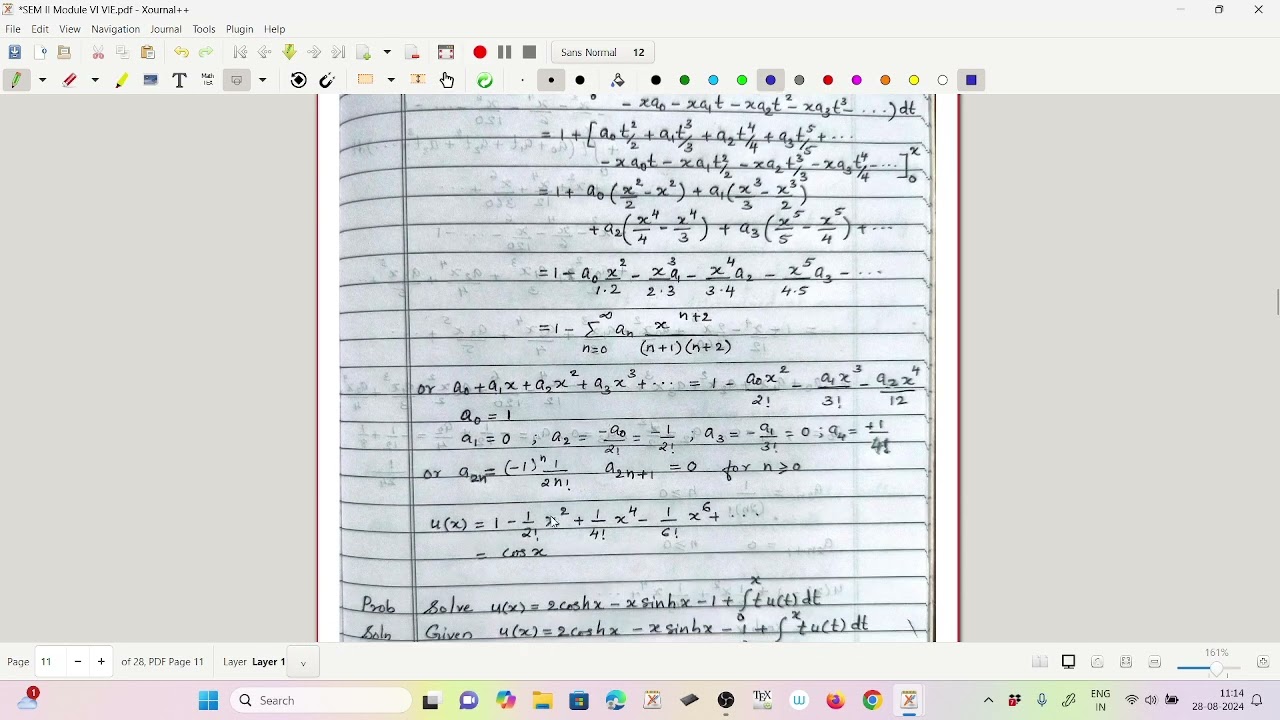 *SEM II Module VI VIE.pdf - Xournal++
File Edit View Navigation Journal Tools Plugin Help
Sans Normal 12
- xa₀ - xa₁t - xa₂t² - xa₃t³ - ...) dt
= 1 + [a₀t²/2 + a₁t³/3 + a₂t⁴/4 + a₃t⁵/5 + ...
- xa₀t - xa₁t²/2 - xa₂t³/3 - xa₃t⁴/4 - ...]₀ˣ
= 1 + a₀(x²/2 - x²) + a₁(x³/3 - x³/2)
+ a₂(x⁴/4 - x⁴/3) + a₃(x⁵/5 - x⁵/4) + ...
= 1 - a₀x²/1.2 - x³a₁/2.3 - x⁴a₂/3.4 - x⁵a₃/4.5 - ...
= 1 - ∑ₙ₌₀^∞ aₙ xⁿ⁺²/(n+1)(n+2)
or a₀ + a₁x + a₂x² + a₃x³ + ... = 1 - a₀x²/2! - a₁x³/3! - a₂x⁴/12
a₀ = 1
a₁ = 0 ; a₂ = -a₀/2! = -1/2! ; a₃ = -a₁/3! = 0 ; a₄ = +1/4!
or a₂ₙ = (-1)ⁿ 1/2n! a₂ₙ₊₁ = 0 for n ≥ 0
u(x) = 1 - 1/2! x² + 1/4! x⁴ - 1/6! x⁶ + ...
= cos x
Prob Solve u(x) = 2coshx - x sinhx - 1 + ∫₀ˣ t u(t) dt
Soln Given u(x) = 2coshx - x sinhx - 1 + ∫ˣ t u(t) dt
Page 11 - + of 28, PDF Page 11 Layer Layer 1
161%
Search
ENG
IN
11:14
28-08-2024